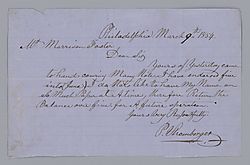 Philadelphia March 9th 1854
Mr Morrison Foster
Dear Sir
Yours of yesterday came
to hand covering Many Notes I have endorsed five
into June I do Not like to have My Name on
so Much Paper at a time, herefor I Return the
Balance over five for A future operation
Yours very Respectfully